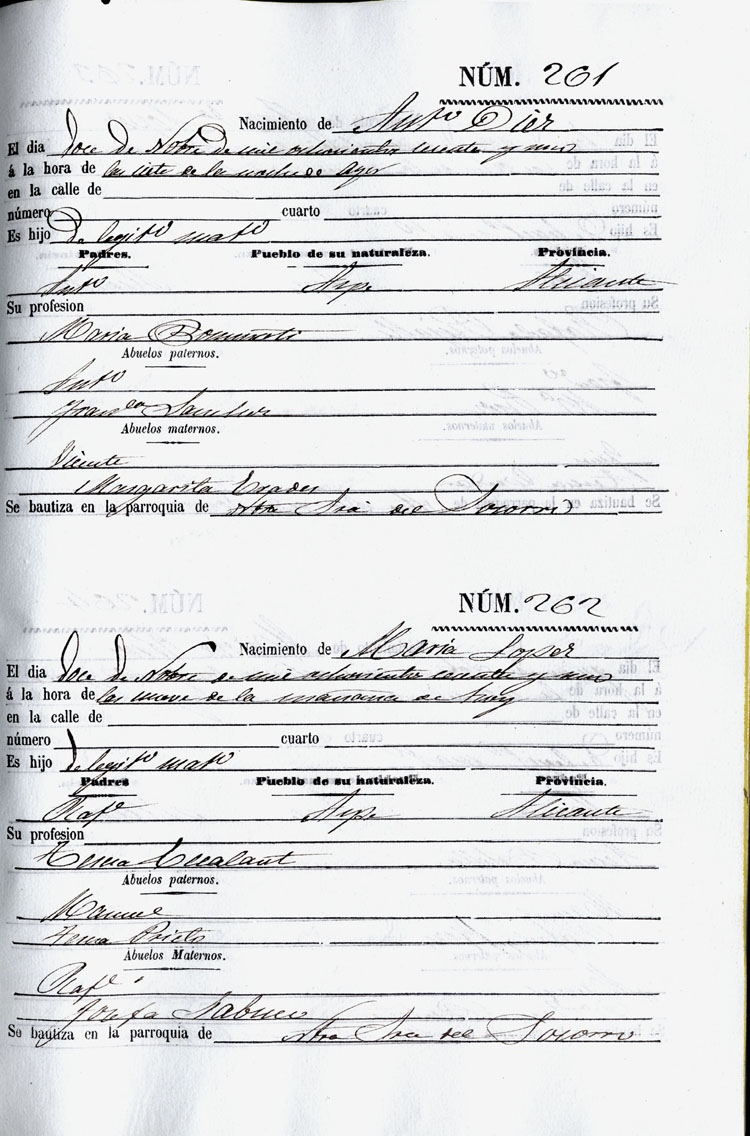 NÚM. 261
Nacimiento de Anto Diez
El dia doce de Nobre de mil ochocientos cuarenta y uno
á la hora de las siete de la noche de ayer
en la calle de
número cuarto
Es hijo de legito mato
Padres. Pueblo de su naturaleza. Provincia.
Anto Aspe Alicante
Su profesion
Maria
Abuelos paternos.
Anto
Franca Sanchez
Abuelos maternos.
Vicente
Margarita
Se bautiza en la parroquia de Ntra Sra del Socorro
NÚM. 262
Nacimiento de Maria Lopez
El dia doce de Nobre de mil ochocientos cuarenta y uno
á la hora de las nueve de la mañana de hoy
en la calle de
número cuarto
Es hijo de legito mato
Padres Pueblo de su naturaleza. Provincia.
Rafl Aspe Alicante
Su profesion
Teresa
Abuelos paternos.
Manuel
Teresa Prieto
Abuelos Maternos.
Rafl
Josefa Sabuco
Se bautiza en la parroquia de Ntra Sra del Socorro